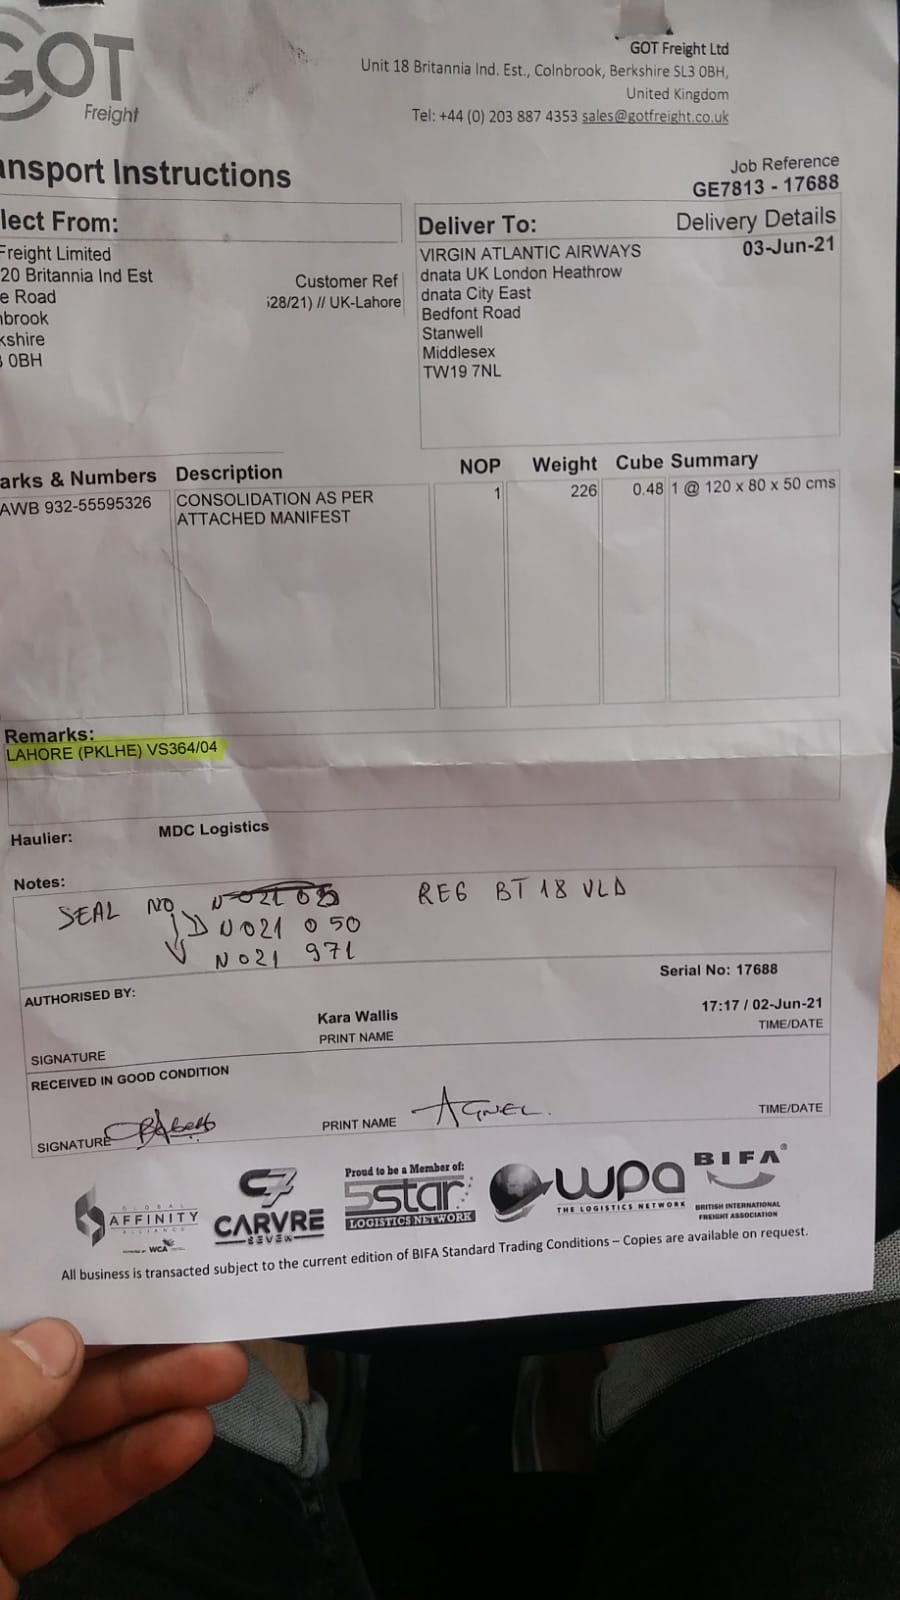 GOT
Freight
GOT Freight Ltd
Unit 18 Britannia Ind. Est., Colnbrook, Berkshire SL3 0BH,
United Kingdom
Tel: +44 (0) 203 887 4353 sales@gotfreight.co.uk
ansport Instructions
Job Reference
GE7813 - 17688
lect From:
Freight Limited
20 Britannia Ind Est
e Road
nbrook
kshire
0BH
Customer Ref
28/21) // UK-Lahore
Deliver To:
Delivery Details
03-Jun-21
VIRGIN ATLANTIC AIRWAYS
dnata UK London Heathrow
dnata City East
Bedfont Road
Stanwell
Middlesex
TW19 7NL
arks & Numbers Description NOP Weight Cube Summary
AWB 932-55595326 CONSOLIDATION AS PER 1 226 0.48 1 @ 120 x 80 x 50 cms
ATTACHED MANIFEST
Remarks:
LAHORE (PKLHE) VS364/04
Haulier: MDC Logistics
Notes:
SEAL NO REG BT18 VLD
N021 050
N021 971
Serial No: 17688
AUTHORISED BY:
Kara Wallis 17:17 / 02-Jun-21
SIGNATURE PRINT NAME TIME/DATE
RECEIVED IN GOOD CONDITION
SIGNATURE PRINT NAME AGNEL. TIME/DATE
GLOBAL
AFFINITY
ALLIANCE
WCA
C7
CARVRE
SEVEN
Proud to be a Member of:
5star
LOGISTICS NETWORK
wpa
THE LOGISTICS NETWORK
BIFA
BRITISH INTERNATIONAL
FREIGHT ASSOCIATION
All business is transacted subject to the current edition of BIFA Standard Trading Conditions – Copies are available on request.